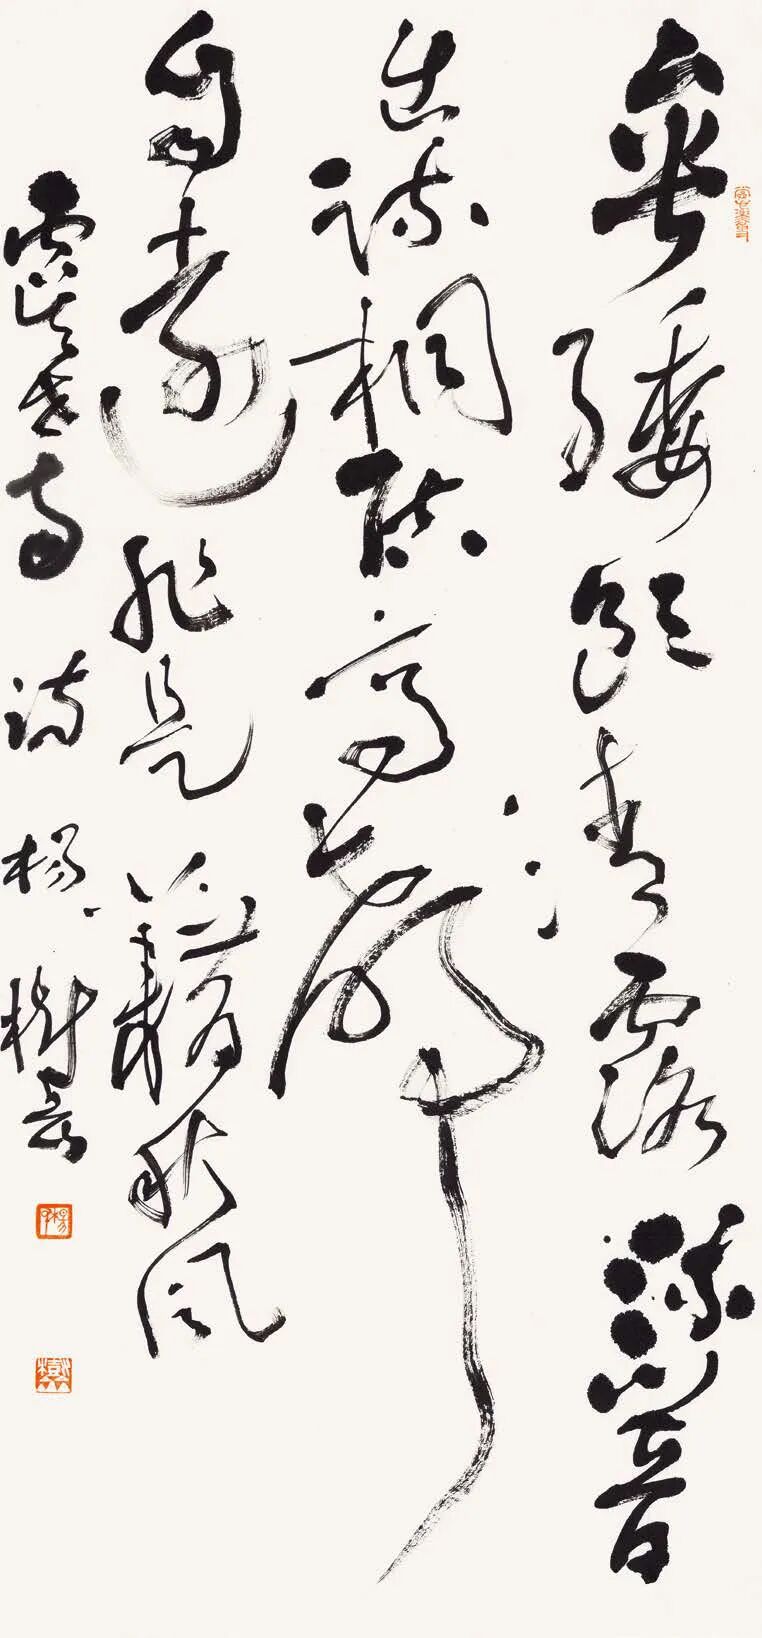 垂緌飲清露流響
出疏桐居高聲
自遠非是藉秋風
虞世南詩 楊樹